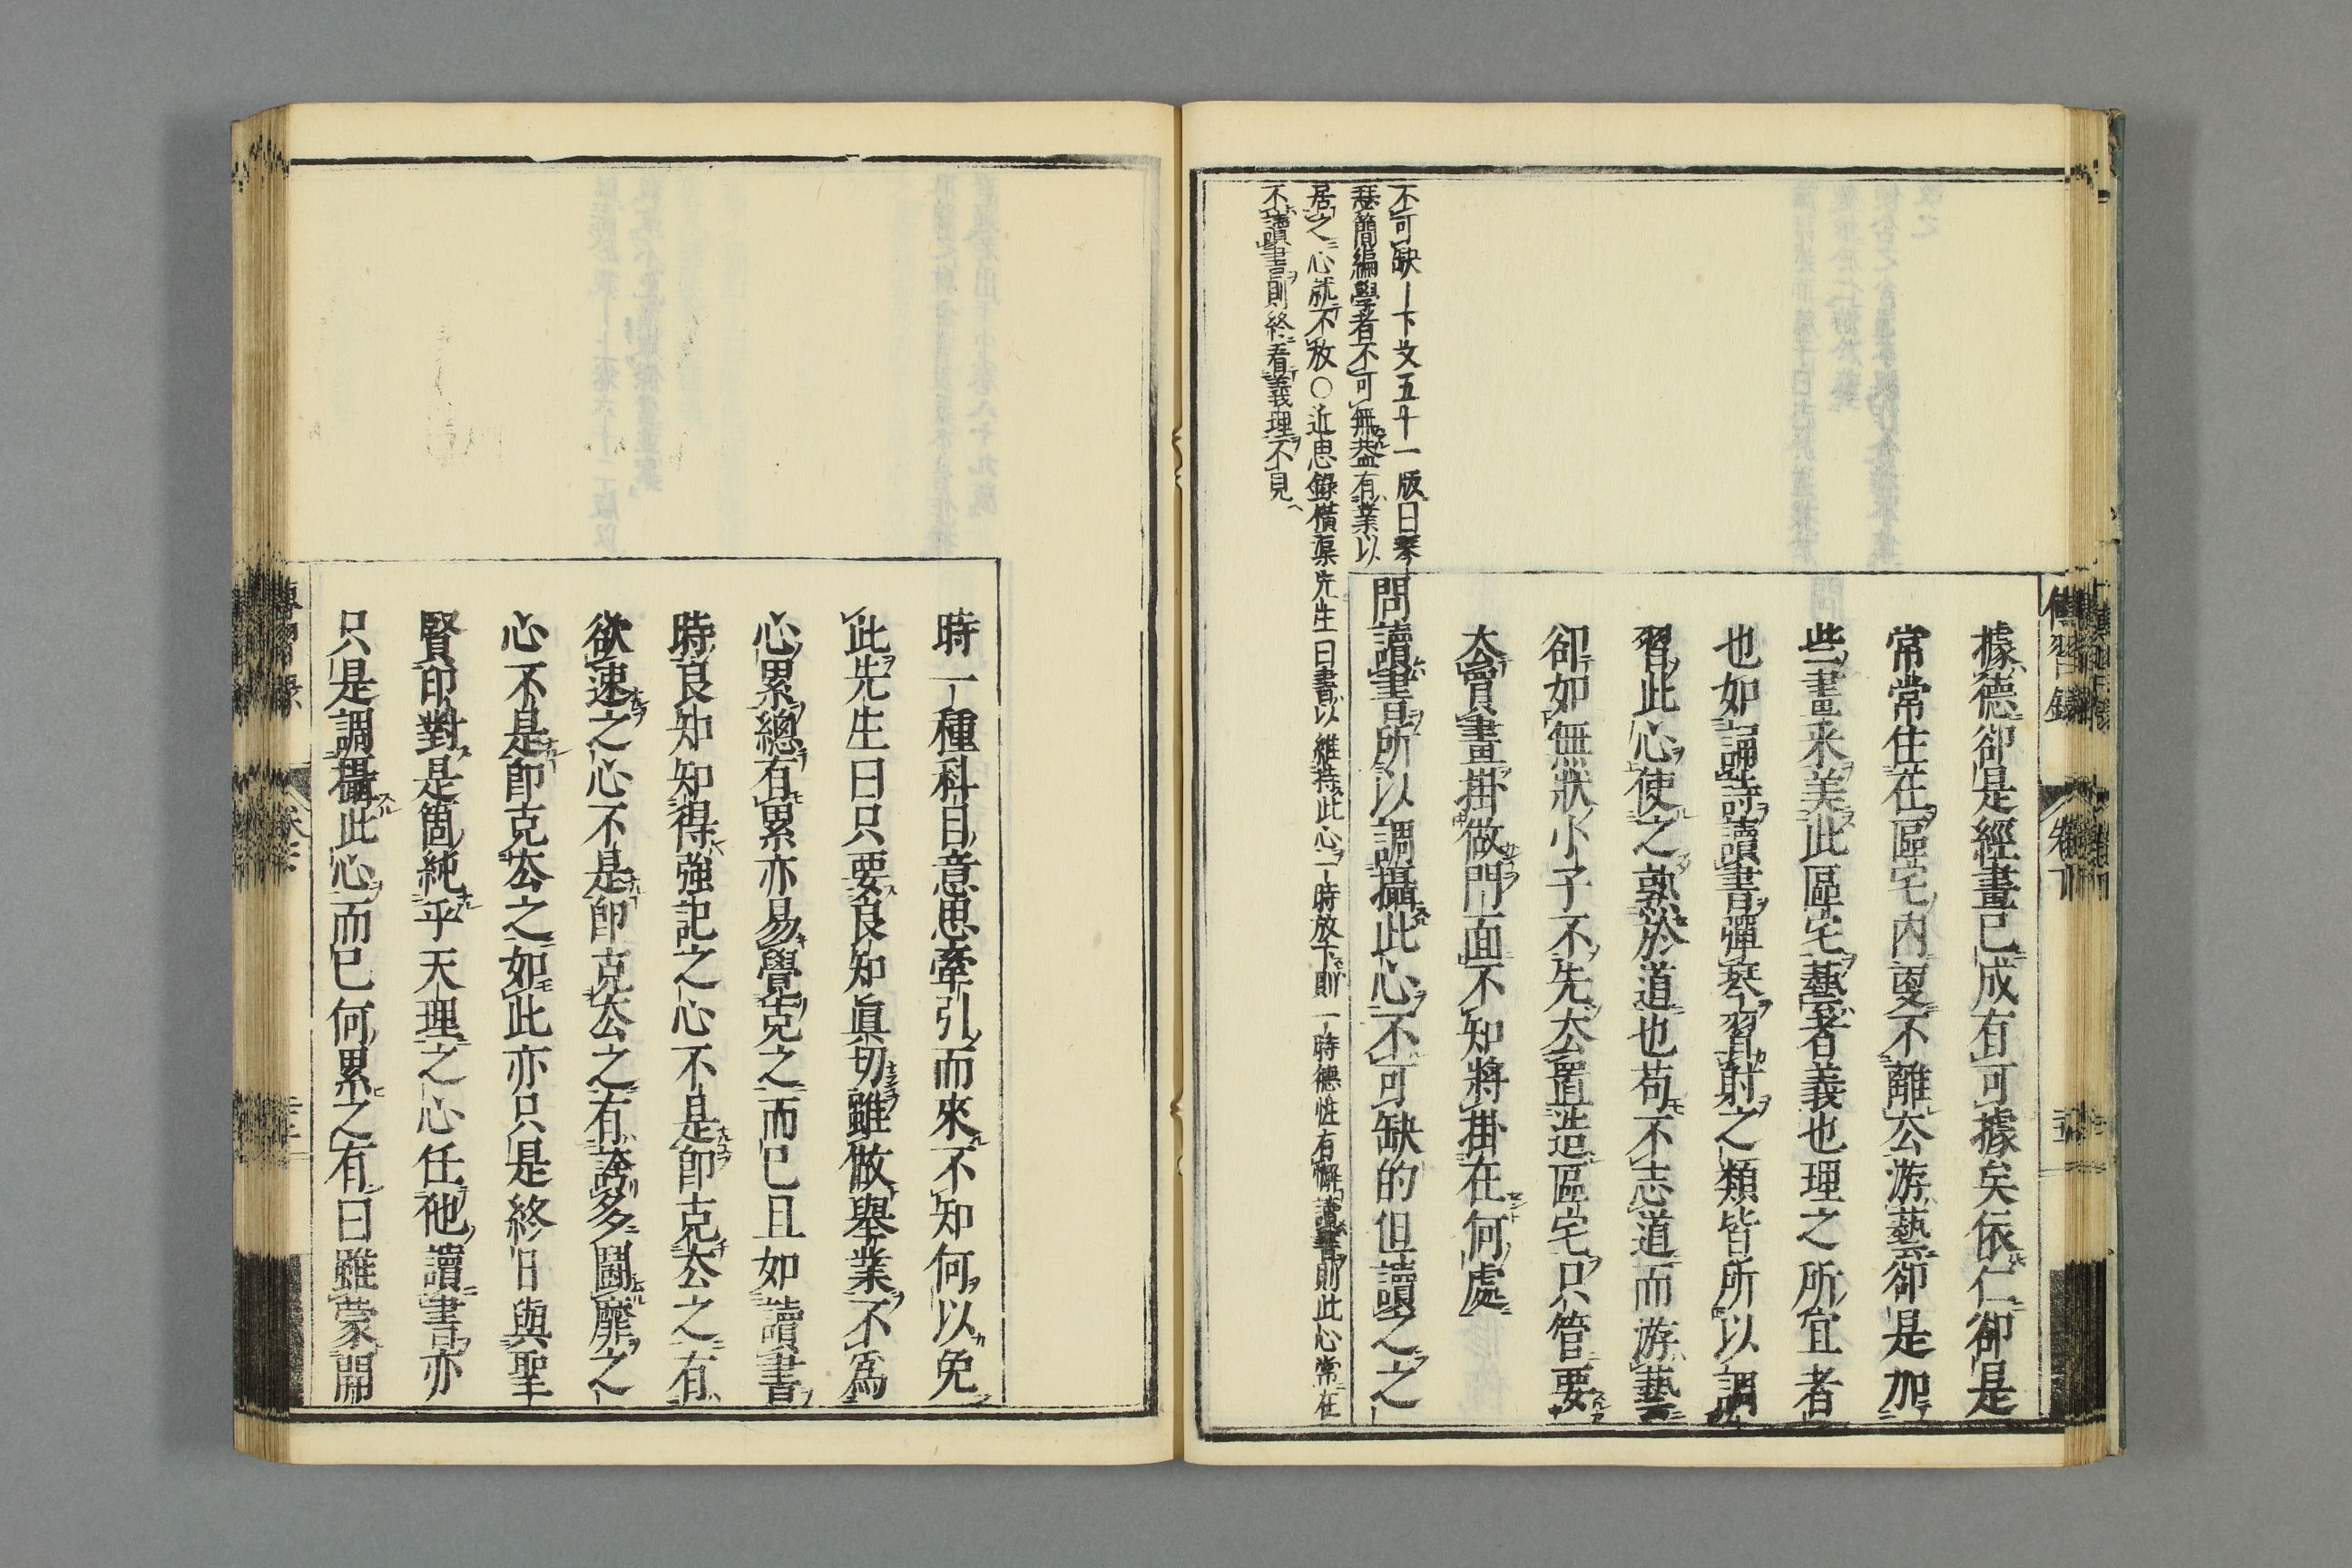 傳習錄
卷下
據德卻是經畫已成有可據矣依仁卻是
常常住在區宅內更不離去游藝卻是加
些畫采美此區宅藝者義也理之所宜者
也如誦詩讀書彈琴習射之類皆所以調
習此心使之熟於道也苟不志道而游藝
卻如無狀小子不先去置造區宅只管要
去買畫掛做門面不知將掛在何處
問讀書所以調攝此心不可缺的但讀之之
不可缺—下文五十一版曰琴
瑟簡編學者不可無蓋有業以
居之心就不放〇近思錄橫渠先生曰書以維持此心一時放下則一時德性有懈讀書則此心常在
不讀書則終看義理不見
時一種科目意思牽引而來不知何以免
此先生曰只要良知眞切雖做擧業不爲
心累總有累亦易覺克之而已且如讀書
時良知知得強記之心不是卽克去之有
欲速之心不是卽克去之有誇多鬪靡之
心不是卽克去之如此亦只是終日與聖
賢印對是箇純乎天理之心任他讀書亦
只是調攝此心而已何累之有曰雖蒙開